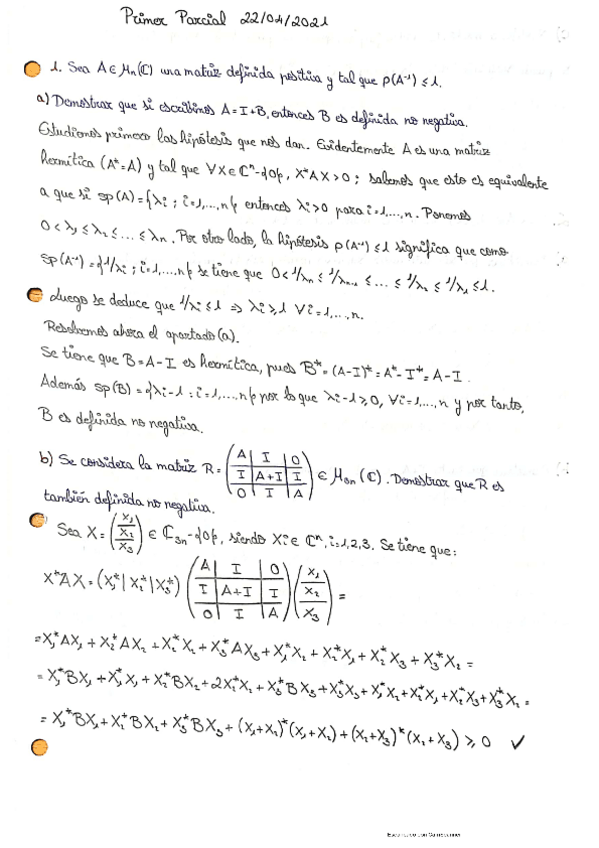 Primer Parcial 22/04/2021
1. Sea A ∈ Mn(ℂ) una matriz definida positiva y tal que ρ(A⁻¹) ≤ 1.
a) Demostrar que si escribimos A = I + B, entonces B es definida no negativa.
Estudiemos primero las hipótesis que nos dan. Evidentemente A es una matriz
hermítica (A* = A) y tal que ∀X ∈ ℂⁿ - {0}, X*AX > 0; sabemos que esto es equivalente
a que si sp(A) = {λi ; i=1,...,n} entonces λi > 0 para i=1,...,n. Ponemos
0 < λ₁ ≤ λ₂ ≤ ... ≤ λn. Por otro lado, la hipótesis ρ(A⁻¹) ≤ 1 significa que como
sp(A⁻¹) = {1/λi ; i=1,...,n} se tiene que 0 < 1/λn ≤ 1/λn-1 ≤ ... ≤ 1/λ₂ ≤ 1/λ₁ ≤ 1.
Luego se deduce que 1/λi ≤ 1 ⇒ λi ≥ 1 ∀i=1,...,n.
Resolvemos ahora el apartado (a).
Se tiene que B = A - I es hermítica, pues B* = (A-I)* = A* - I* = A - I.
Además sp(B) = {λi-1 : i=1,...,n} por lo que λi-1 ≥ 0, ∀i=1,...,n y por tanto,
B es definida no negativa.
b) Se considera la matriz R = (A | I | 0 / I | A+I | I / 0 | I | A) ∈ M₃n(ℂ). Demostrar que R es
también definida no negativa.
Sea X = (X₁ / X₂ / X₃) ∈ ℂ₃n - {0}, siendo Xi ∈ ℂⁿ, i=1,2,3. Se tiene que:
X*AX = (X₁* | X₂* | X₃*) (A | I | 0 / I | A+I | I / 0 | I | A) (X₁ / X₂ / X₃) =
= X₁*AX₁ + X₂*AX₂ + X₂*X₂ + X₃*AX₃ + X₁*X₂ + X₂*X₁ + X₂*X₃ + X₃*X₂ =
= X₁*BX₁ + X₁*X₁ + X₂*BX₂ + 2X₂*X₂ + X₃*BX₃ + X₃*X₃ + X₁*X₂ + X₂*X₁ + X₂*X₃ + X₃*X₂ =
= X₁*BX₁ + X₂*BX₂ + X₃*BX₃ + (X₁+X₂)*(X₁+X₂) + (X₂+X₃)*(X₂+X₃) ≥ 0 ✓
Escaneado con CamScanner